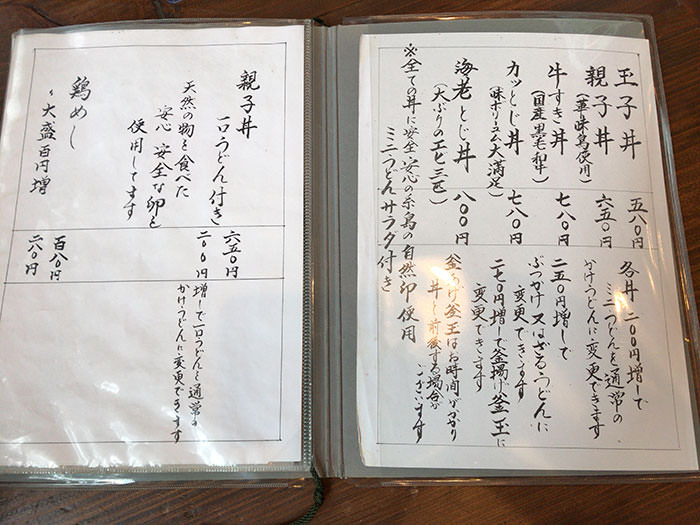 玉子丼 五八〇円
親子丼 六五〇円
(華味鳥使用)
牛すき丼 七八〇円
(国産黒毛和牛)
カツとじ丼 七八〇円
(味ボリューム大満足)
海老とじ丼 八〇〇円
(大ぶりのエビ三匹)
※全ての丼に安全安心の糸島の自然卵使用
ミニうどんサラダ付き
各丼 二〇〇円増しで
ミニうどんを通常の
かけうどんに変更できます
二五〇円増しで
ぶっかけ又はざるうどんに
変更できます
二七〇円増しで釜揚げ釜玉に
変更できます
釜あげ釜玉はお時間がかかり
丼と前後する場合が
ございます
親子丼
一口うどん付き 六五〇円
天然の物を食べた
安心安全な卵を
使用してます
二〇〇円増しで一口うどんを通常の
かけうどんに変更できます
鶏めし 百八〇円
〃大盛百円増 二八〇円